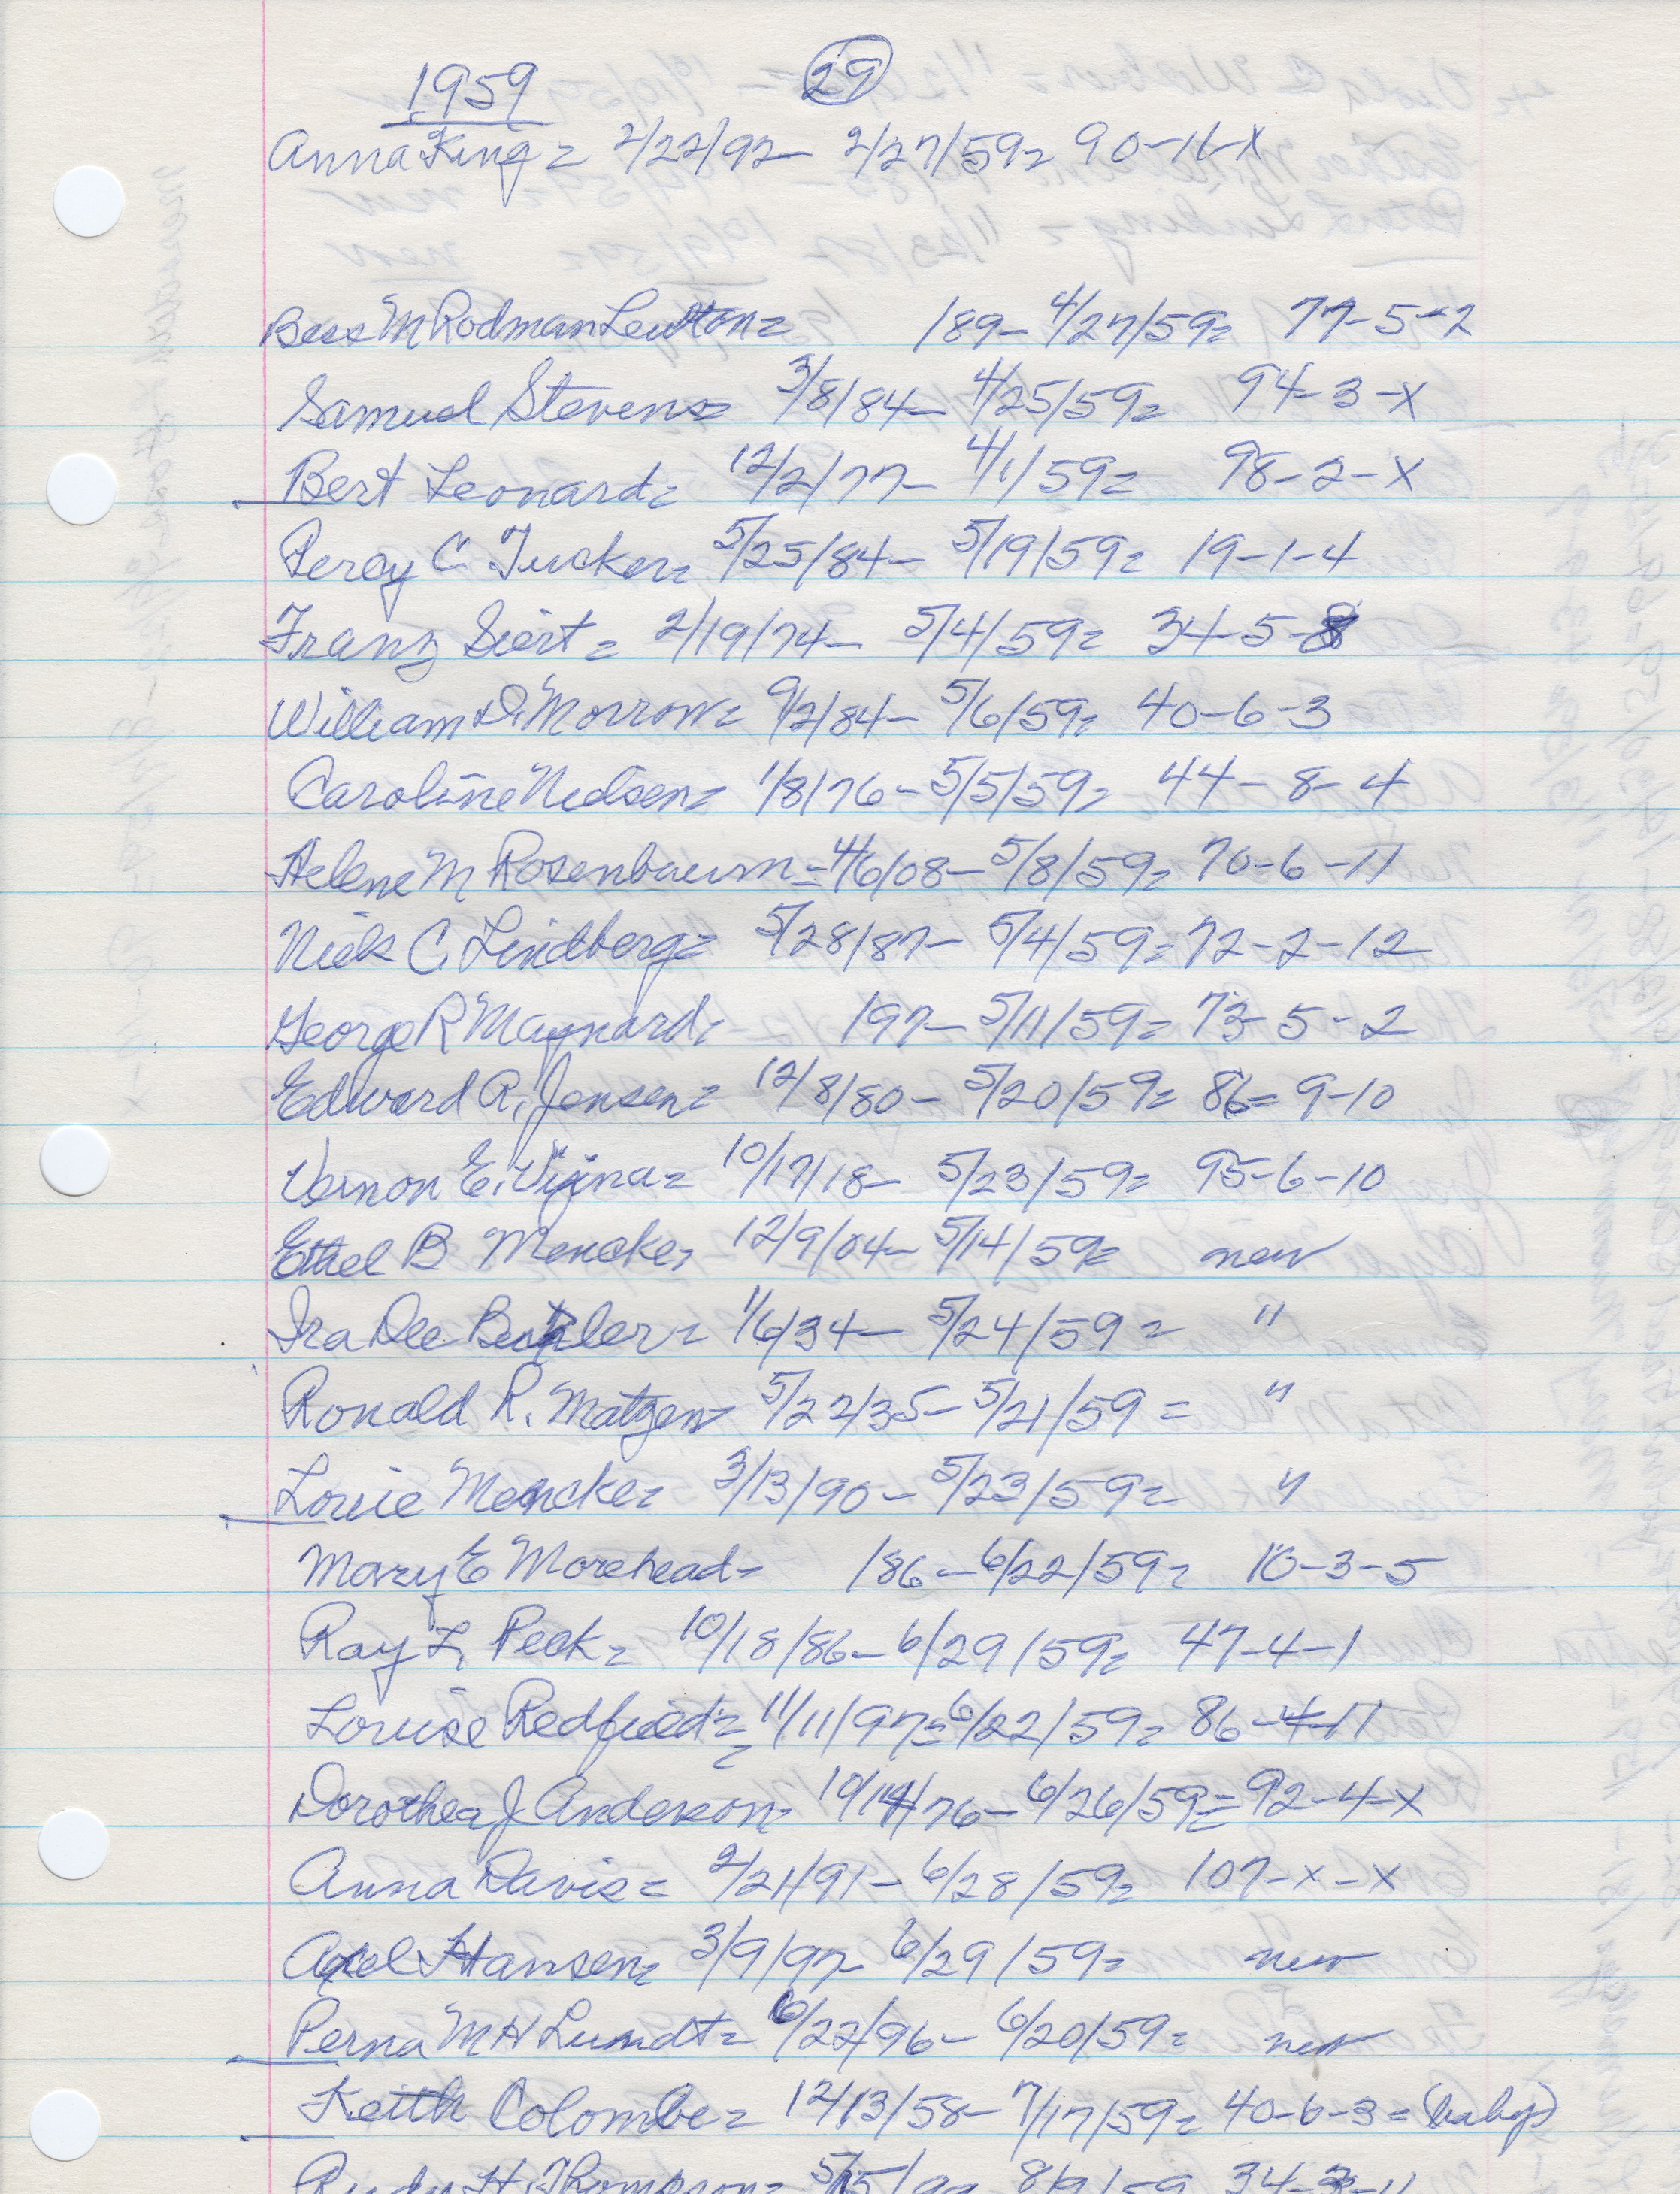 1959 29
Anna King = 2/22/92 - 2/27/59 = 90-11-X
Bess M Rodman Lewton = 189- 4/27/59 = 77-5-2
Samuel Stevens = 3/8/84 - 4/25/59 = 94-3-X
Bert Leonard = 12/2/77 - 4/1/59 = 98-2-X
Percy C. Tucker = 5/25/84 - 5/19/59 = 19-1-4
Franz Siert = 2/19/74 - 5/4/59 = 34-5-8
William D. Morrow = 9/2/84 - 5/6/59 = 40-6-3
Caroline Nielsen = 1/8/76 - 5/5/59 = 44-8-4
Helene M Rosenbaum = 4/6/08 - 5/8/59 = 70-6-11
Nick C. Lindberg = 5/28/87 - 5/4/59 = 72-2-12
George R Maynard = 197- 5/11/59 = 73-5-2
Edward R. Jensen = 12/8/80 - 5/20/59 = 86=9-10
Vernon E. Vigina = 10/17/18 - 5/23/59 = 95-6-10
Ethel B Mencke = 12/9/04 - 5/14/59 = new
Ira Dee = 1/6/34 - 5/24/59 = "
Ronald R. Matzen = 5/22/35 - 5/21/59 = "
Louie Mencke = 3/13/90 - 5/23/59 = "
Mary E Morehead = 186- 6/22/59 = 10-3-5
Ray L. Peck = 10/18/86 - 6/29/59 = 47-4-1
Louise Redfield = 11/11/97 = 6/22/59 = 86-4-11
Dorothea J Anderson = 10/14/76 - 6/26/59 = 92-4-X
Anna Davis = 2/21/91 - 6/28/59 = 107-X-X
Axel Hansen = 3/9/97 - 6/29/59 = new
Perna M H Lundt = 6/22/96 - 6/20/59 = new
Keith Colombe = 12/13/58 - 7/17/59 = 40-6-3 = (baby)
Rudy H. Thompson =